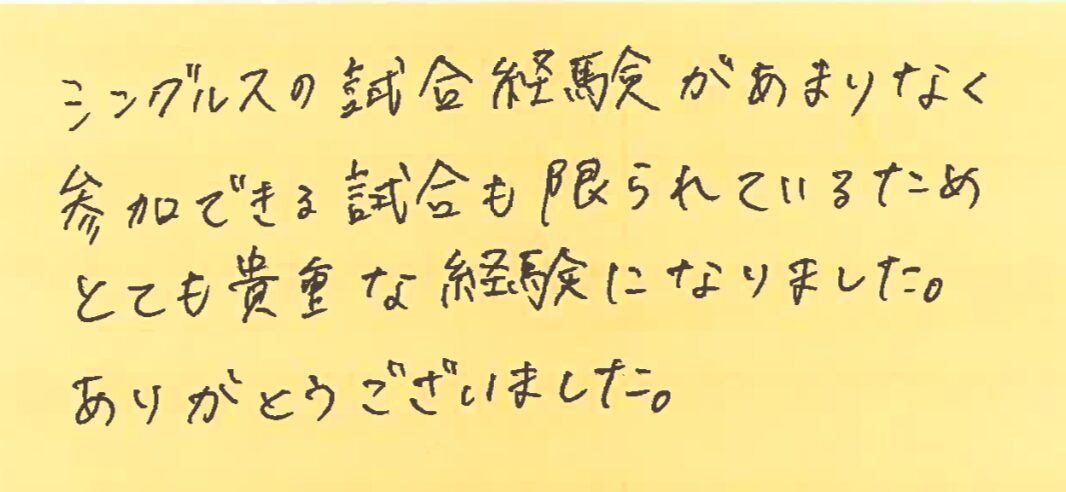 シングルスの試合経験があまりなく
参加できる試合も限られているため
とても貴重な経験になりました。
ありがとうございました。